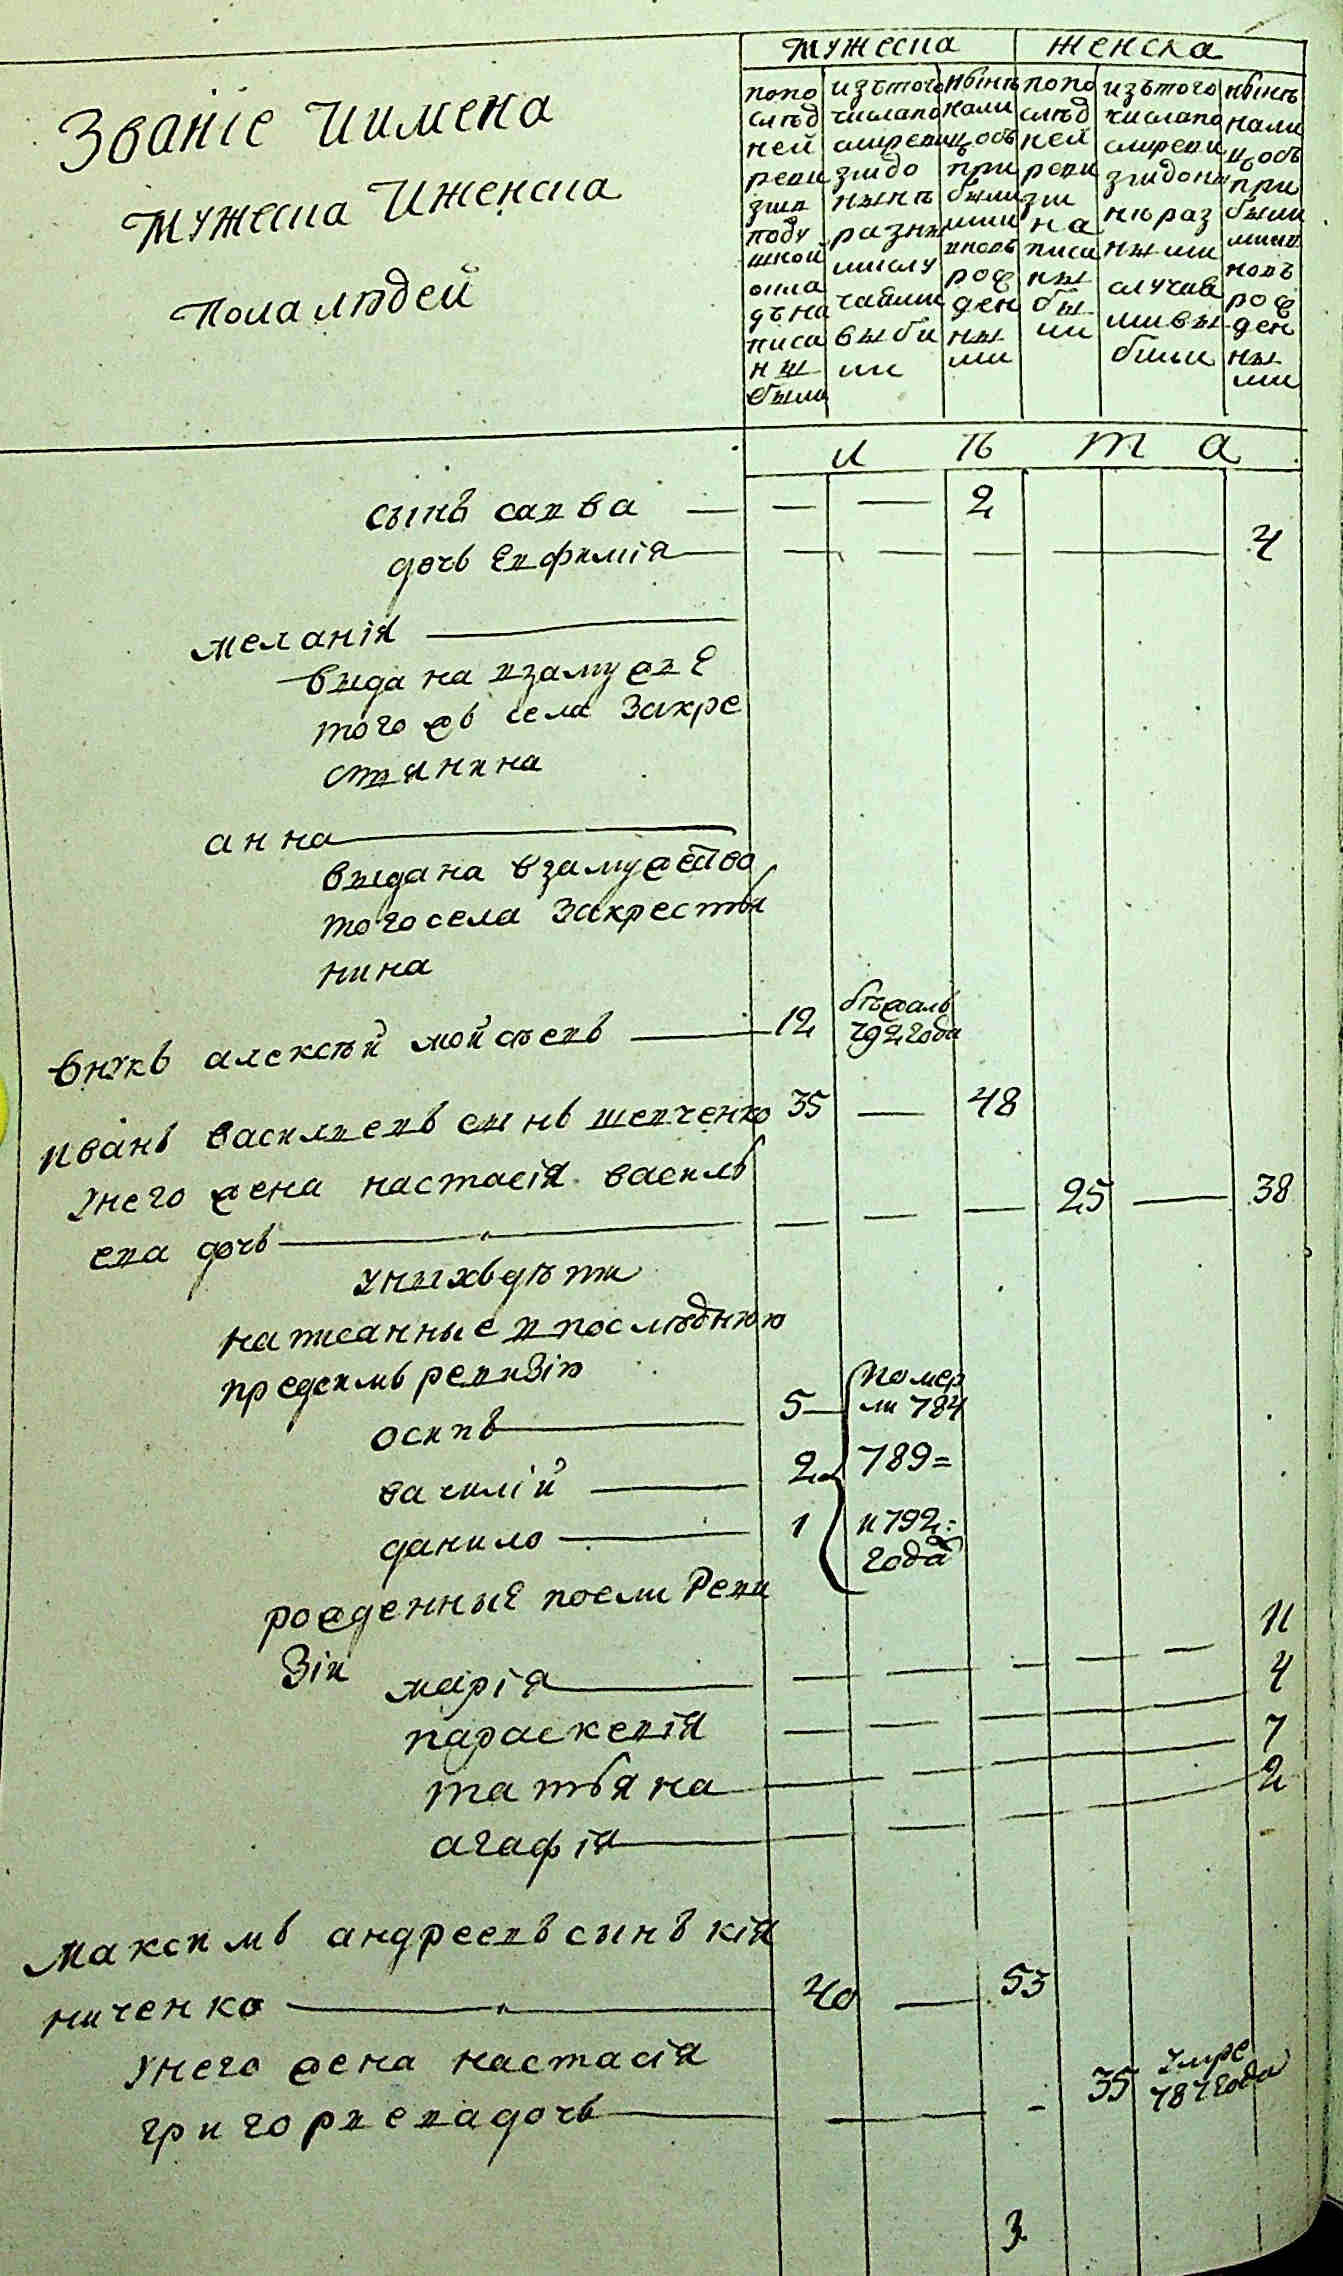 мужеска женска
Званіе иимена
мужеска иженска
пола людей
попо
слѣд
ней
реви
зіи
поду
шной
окла
дъ на
писа
ны
были
изъ того
числа по
слиреви
зіи до
нынѣ
разны
ми слу
чаями
выбы
ли
нынѣ
нали
цо съ
при
былы
ми и
вновь
рож
ден
ны
ми
попо
слѣд
ней
реви
зіи
на
писа
ны
бы
ли
изъ того
числа по
слиреви
зіи до ны
нѣ раз
ны ми
случая
ми вы
были
нынѣ
нали
цо съ
при
былы
ми и в
новь
рож
ден
ны
ми
л ѣ т а
сынъ савва — — — 2
дочь Евфимія — — — — — 4
меланія
выдана взамужвѣ
того жъ села Закре
стянина
анна
выдана взамужство
того села Закрестья
нина
внукъ алексѣй мойсѣевъ — 12 бѣжалъ
792 года
иванъ васильевъ сынъ шевченко 35 — 48
унего жена настасія василь
ева дочь — — — — 25 — 38
уныхъ дѣти
написанные впослѣднюю
предсимъ ревизію
осипъ — 5 — помер
ли 784
василій — 2 789=
данило — 1 и 792=
года
рожденныѣ посли Реви
зіи марія — — — — — — 11
параскевія — — — — 4
татьяна — — — 7
агафія — — — — 2
максимъ андреевъ сынъ кія
ниченко — 40 — 53
унего жена настасія
григориева дочь — — - 35 умре
787 года
3